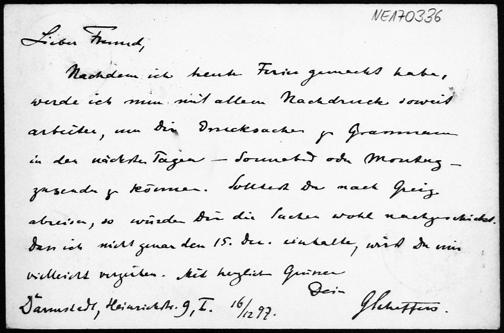 NE170336
Lieber Freund,
Nachdem ich heute Ferien gemacht habe,
werde ich nun mit allem Nachdruck soweit
arbeiten, um Dir Drucksachen z. Grassmann
in den nächsten Tagen – Sonnabend oder Montag –
zusenden z. können. Solltest Du nach Greiz
abreisen, so würden Dir die Sachen wohl nachgeschickt.
Dass ich nicht genau den 15. Dec. einhalte, wirst Du mir
vielleicht verzeihen. Mit herzlichen Grüssen
Dein
Darmstadt, Heinrichstr. 9, I. 16/12 97. GScheffers.